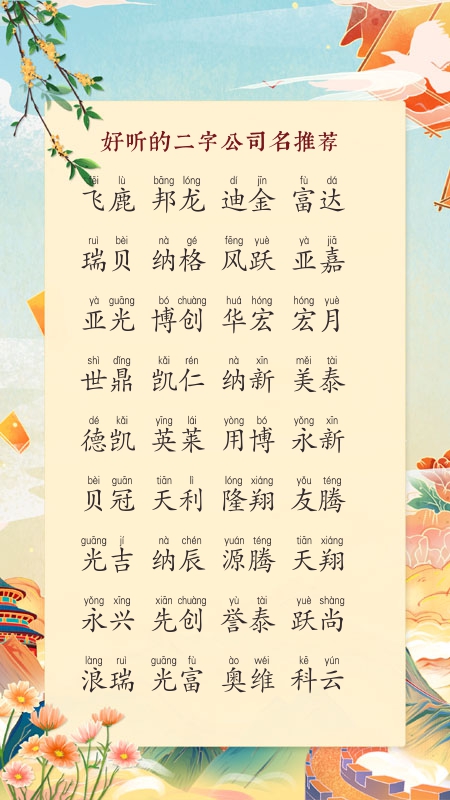 好听的二字公司名推荐
fēi lù bāng lóng dí jīn fù dá
飞鹿 邦龙 迪金 富达
ruì bèi nà gé fēng yuè yà jiā
瑞贝 纳格 风跃 亚嘉
yà guāng bó chuàng huá hóng hóng yuè
亚光 博创 华宏 宏月
shì dǐng kǎi rén nà xīn měi tài
世鼎 凯仁 纳新 美泰
dé kǎi yīng lái yòng bó yǒng xīn
德凯 英莱 用博 永新
bèi guān tiān lì lóng xiáng yǒu téng
贝冠 天利 隆翔 友腾
guāng jí nà chén yuán téng tiān xiáng
光吉 纳辰 源腾 天翔
yǒng xīng xiān chuàng yù tài yuè shàng
永兴 先创 誉泰 跃尚
làng ruì guāng fù ào wéi kē yún
浪瑞 光富 奥维 科云